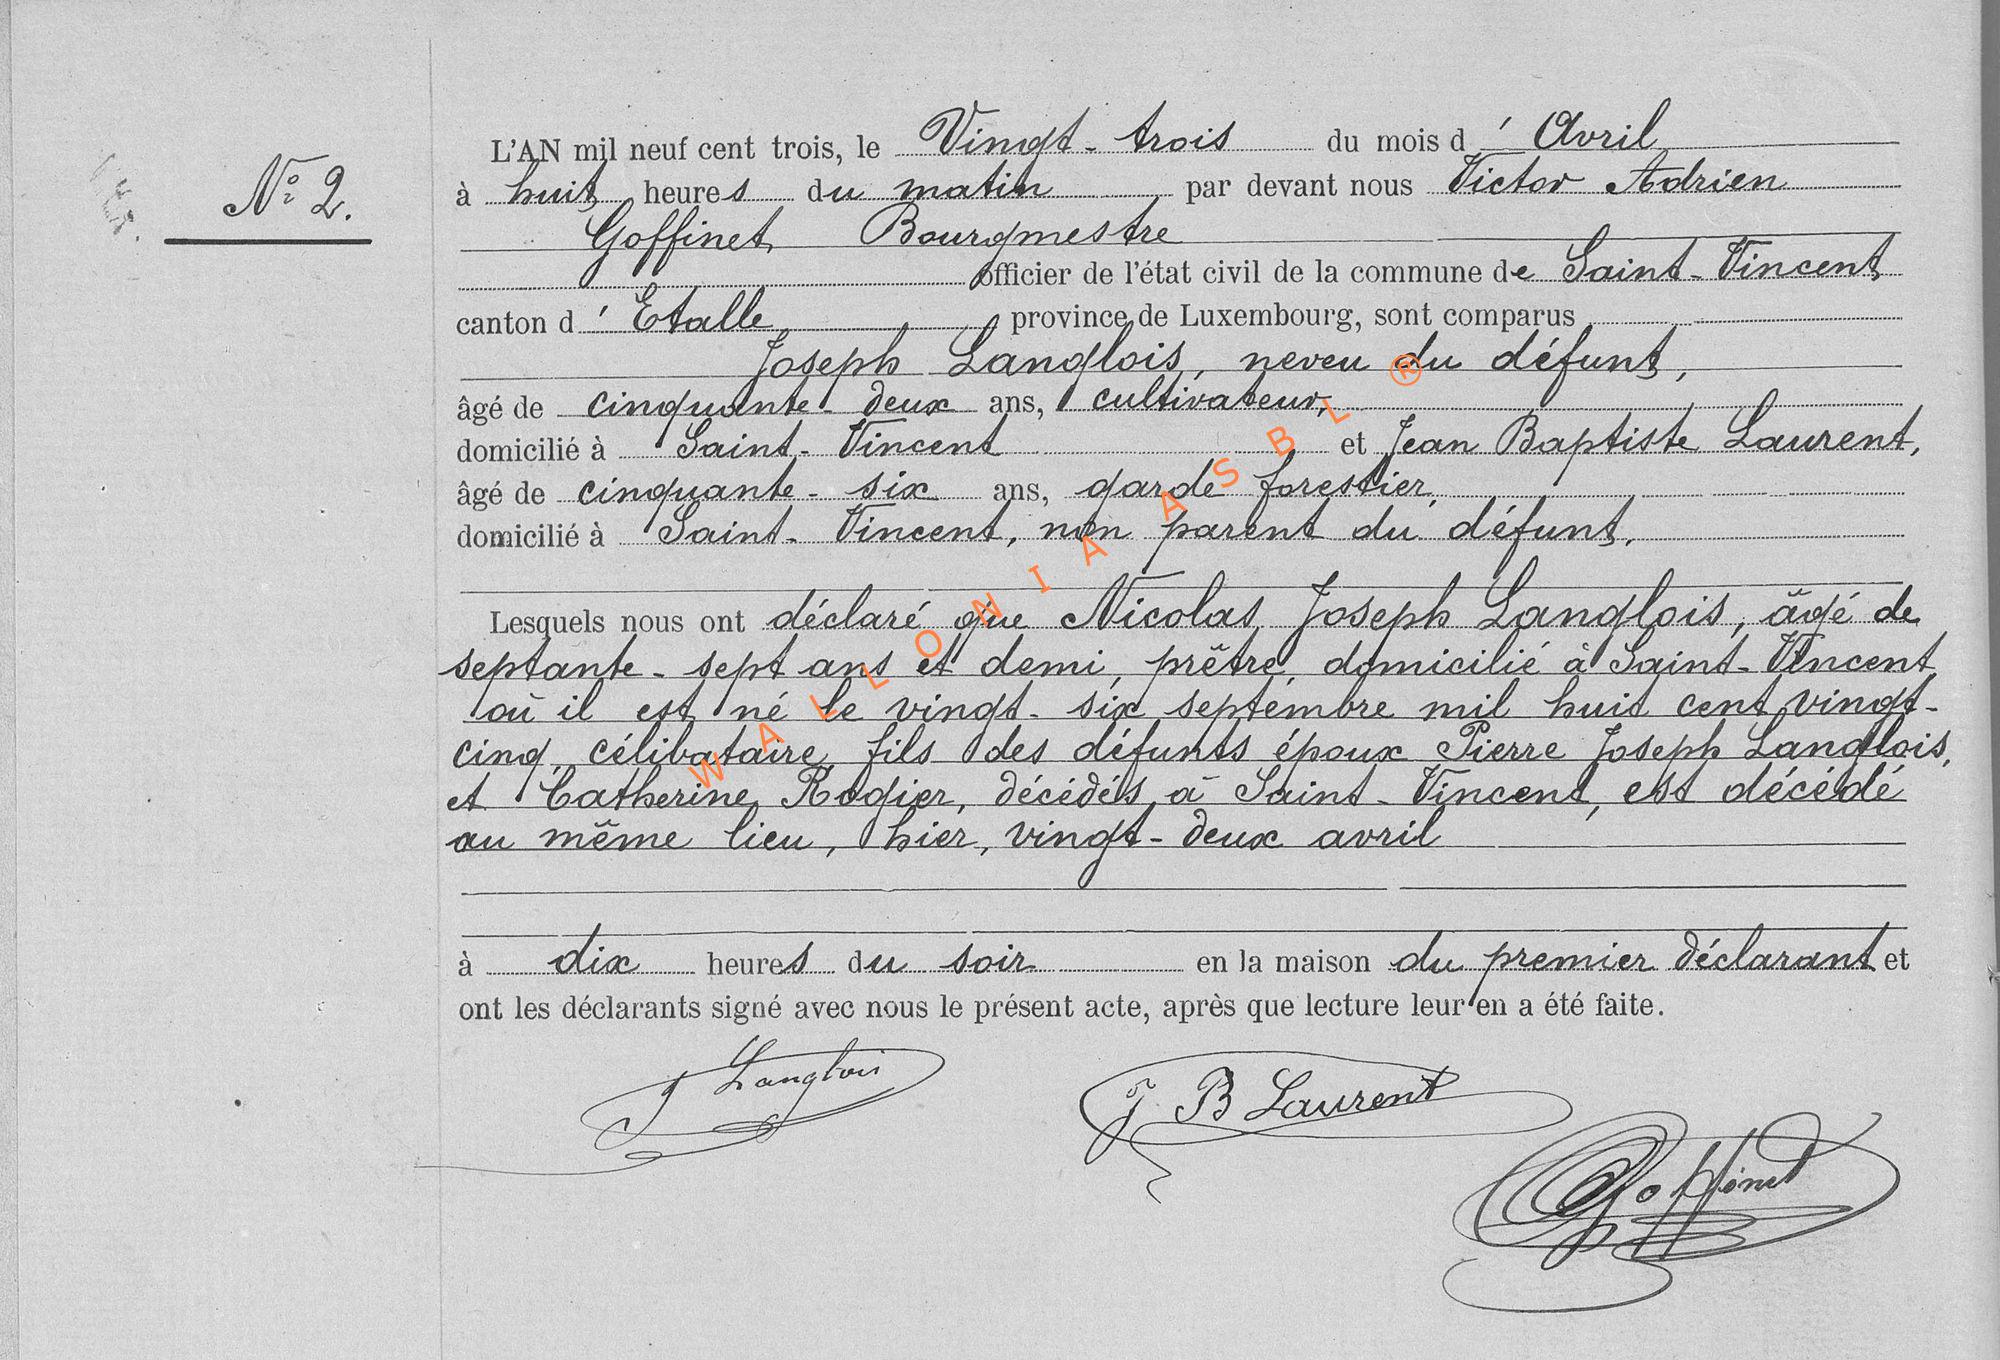 N° 2.
L'AN mil neuf cent trois, le Vingt-trois du mois d' Avril
à huit heures du matin par devant nous Victor Adrien
Goffinet Bourgmestre
officier de l'état civil de la commune de Saint-Vincent
canton d' Etalle province de Luxembourg, sont comparus
Joseph Langlois, neveu du défunt,
âgé de cinquante-deux ans, cultivateur,
domicilié à Saint-Vincent et Jean Baptiste Laurent,
âgé de cinquante-six ans, garde forestier,
domicilié à Saint-Vincent, non parent du défunt.
Lesquels nous ont déclaré que Nicolas Joseph Langlois, âgé de
septante-sept ans et demi, prêtre, domicilié à Saint-Vincent
où il est né le vingt-six septembre mil huit cent vingt-
cinq, célibataire, fils des défunts époux Pierre Joseph Langlois,
et Catherine Rogier, décédés à Saint-Vincent, est décédé
au même lieu, hier, vingt-deux avril
à dix heures du soir en la maison du premier déclarant et
ont les déclarants signé avec nous le présent acte, après que lecture leur en a été faite.
J Langlois
J B Laurent
Goffinet
WALLONIA ASBL ®